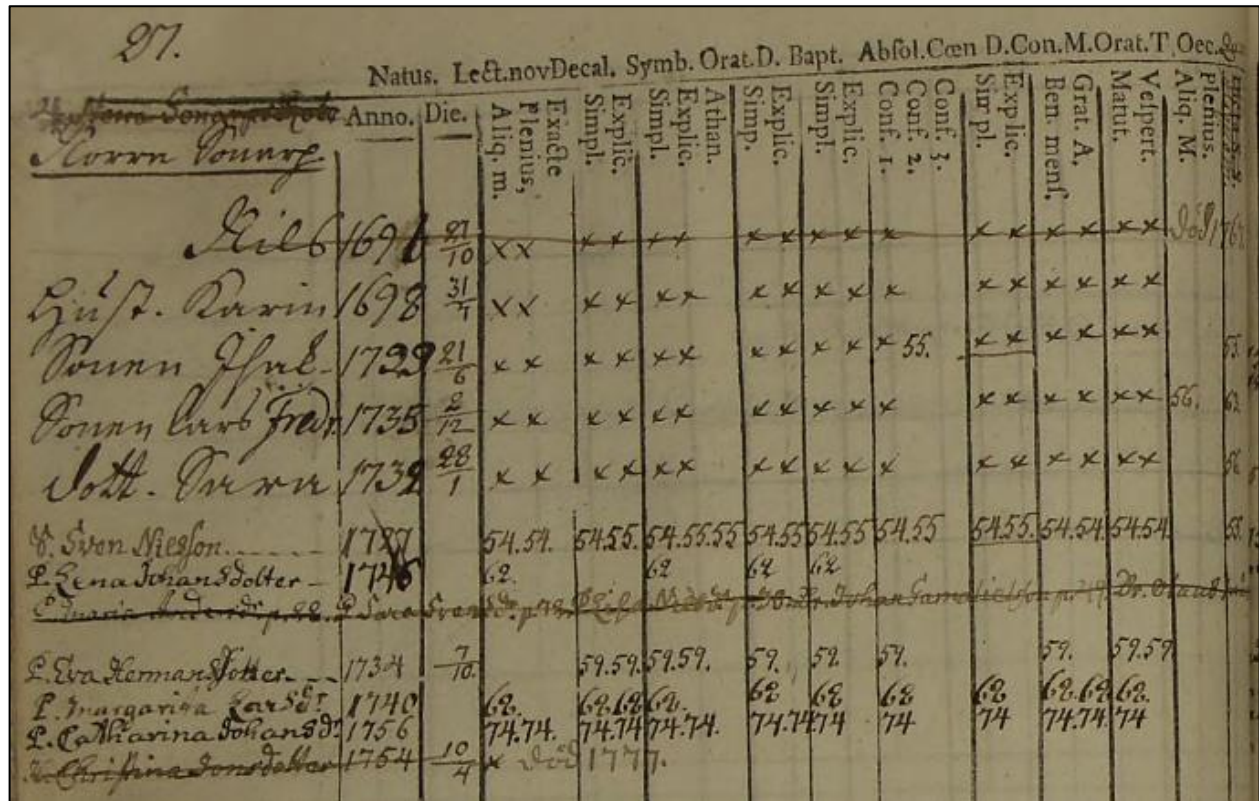 27.
Natus. Lect.nov Decal. Symb. Orat.D. Bapt. Absol. Cœn D. Con.M. Orat.T Oec.
Anno. Die. Aliq. m. Plenius, Exacte Simpl. Explic. Simpl. Explic. Athan. Simp. Explic. Simpl. Explic. Conf. 1. Conf. 2. Conf. 3. Simpl. Explic. Ben. mens. Grat. A. Matut. Vespert. Aliq. M. Plenius.
Norra Sonarp.
Nils 1691 27/10 x x x x x x x x x x x x x x x x x död 176
Hust. Karin 1698 31/7 x x x x x x x x x x x x x x x x x
Sonen Isak 1729 21/6 x x x x x x x x x x x 55. x x x x x x 55.
Sonen Lars Fredr. 1735 2/12 x x x x x x x x x x x x x x x x x 56. 63.
dott. Sara 1732 28/1 x x x x x x x x x x x x x x x x x
Sven Nilsson 1727 54.54. 54.55. 54.55.55 54.55 54.55 54.55 54.55. 54.54. 54.54. 55.
P. Lena Johansdotter 1746 62. 62 62 62
P. Eva Hermansdotter 1734 7/10. 59.59. 59.59. 59. 59. 59. 59. 59.59
P. Margaritha Larsdr 1740 62. 62.62 62. 62 62 62 62 62.62 62.
P. Catharina Johansdr 1756 74.74. 74.74 74.74. 74.74 74 74 74 74.74 74
Christina Jonsdotter 1754 10/4 x död 1777.